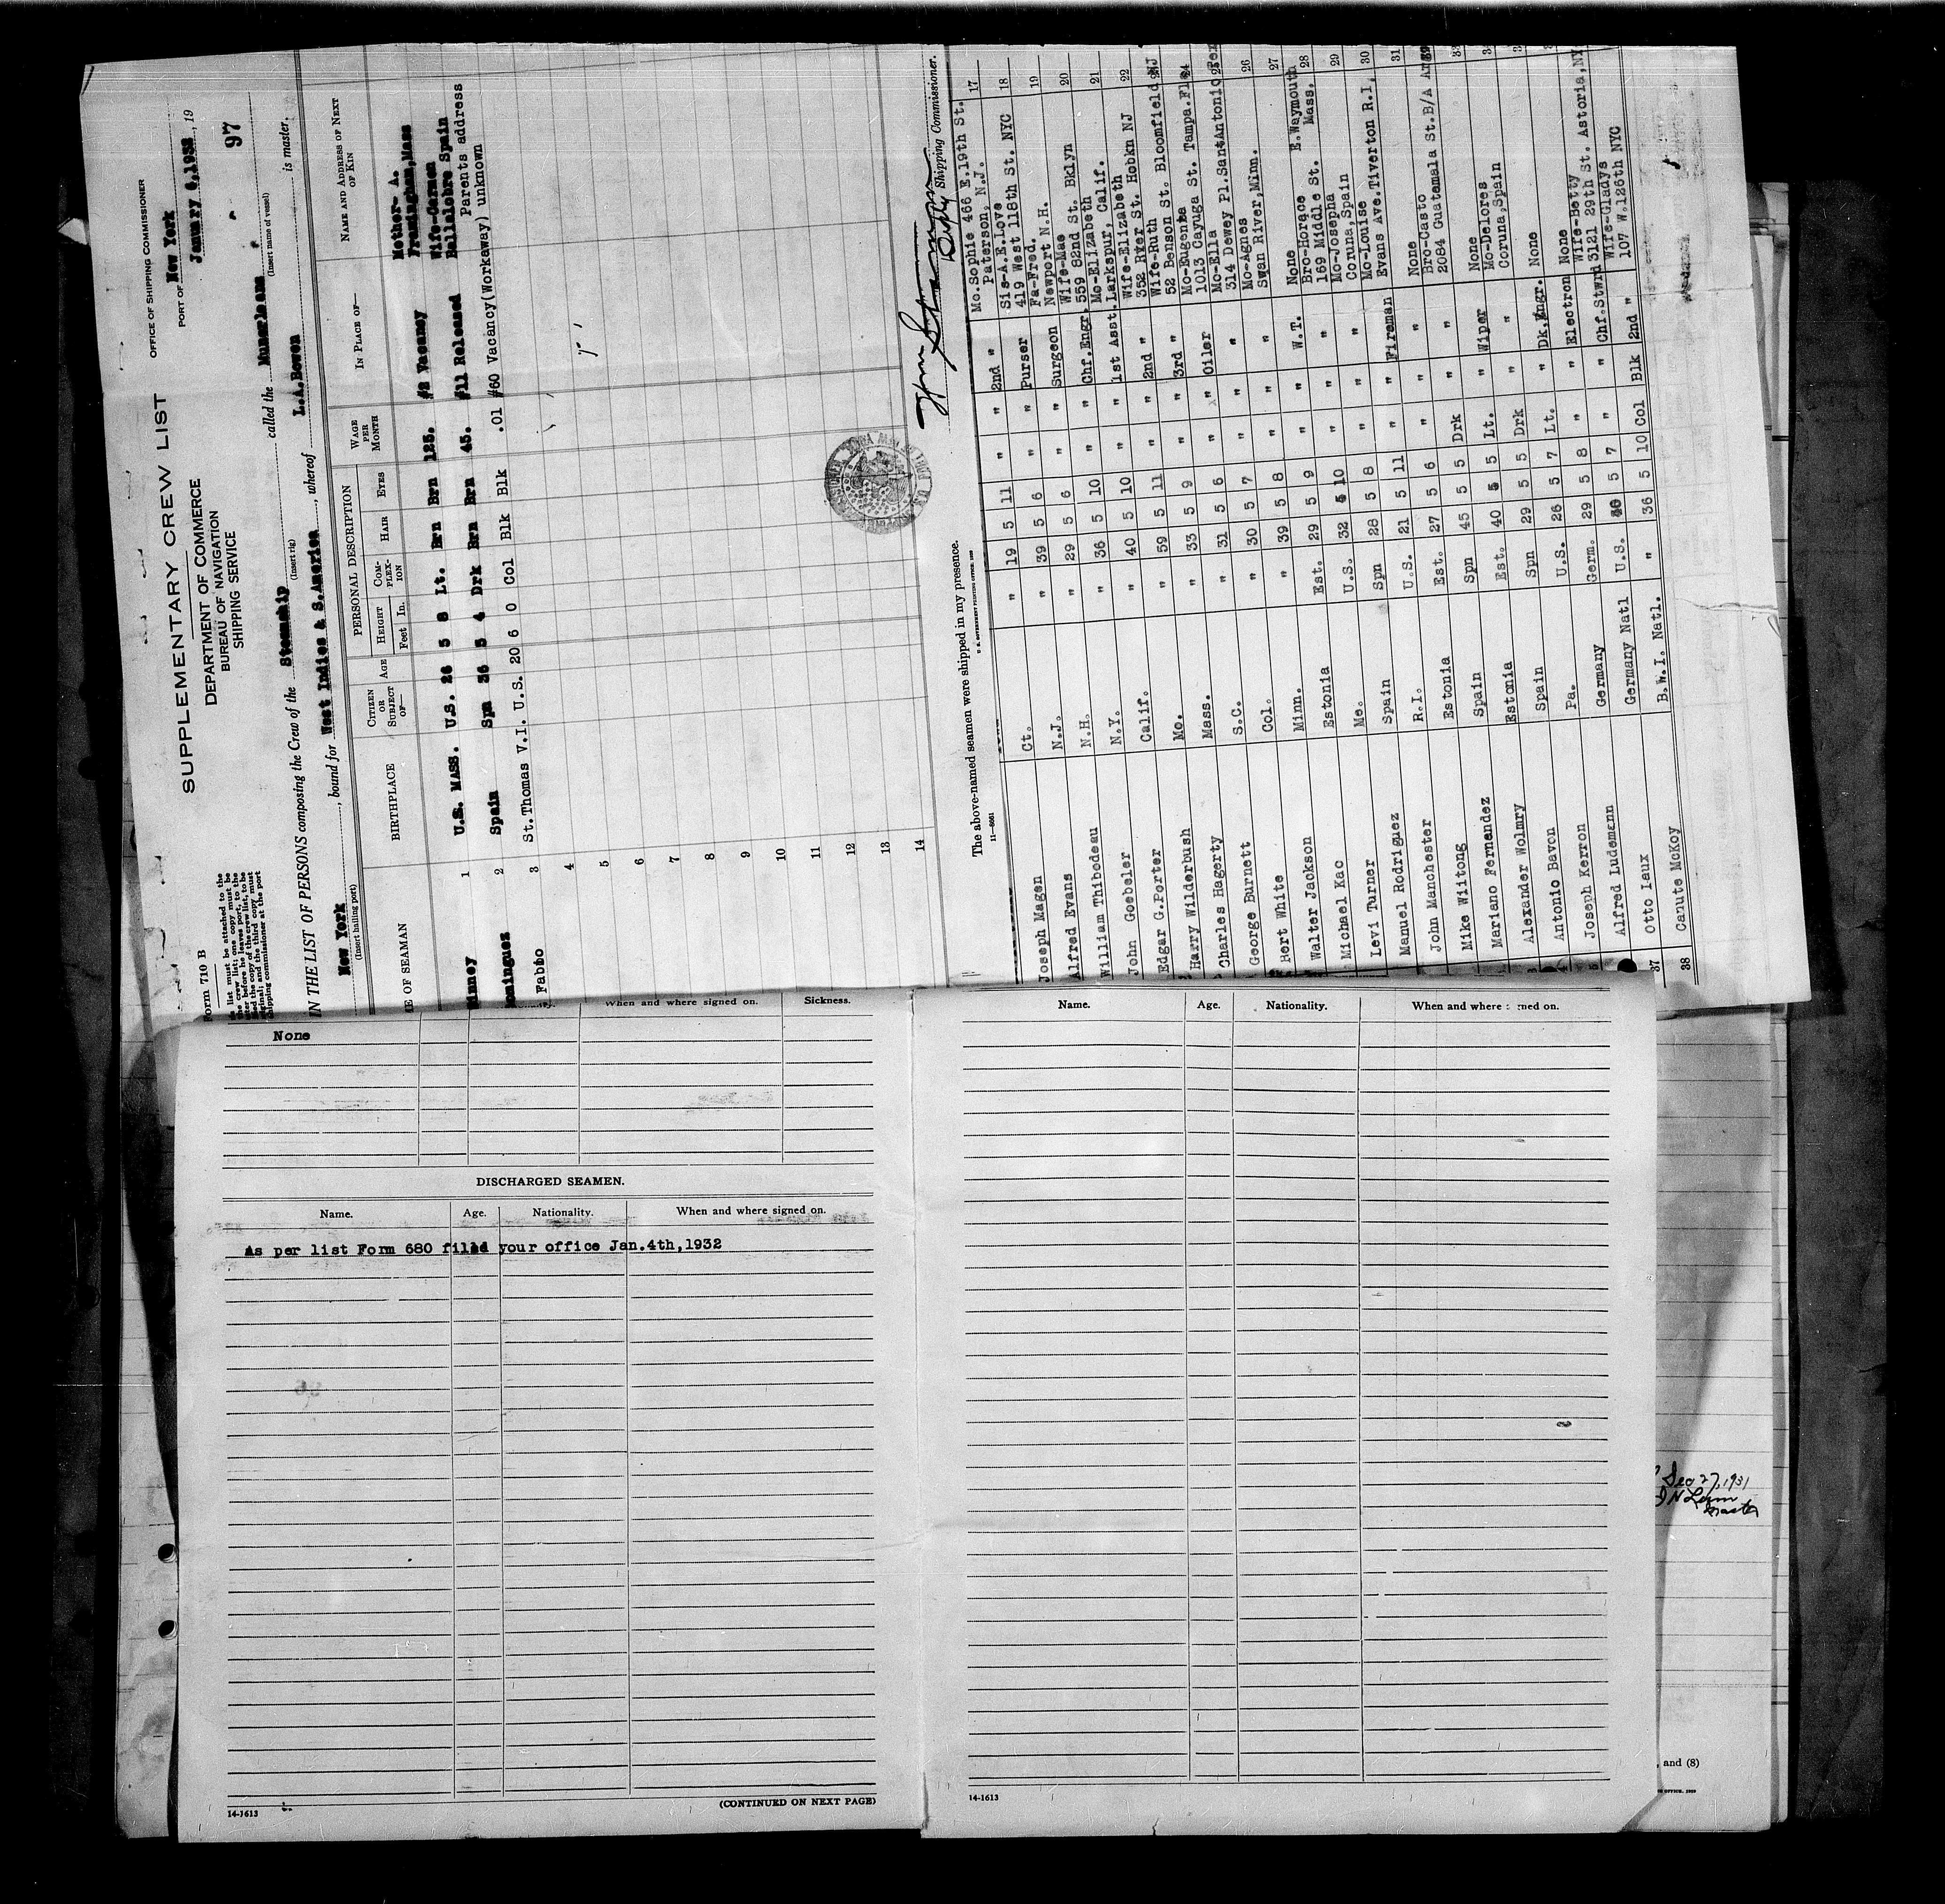 SUPPLEMENTARY CREW LIST
OFFICE OF SHIPPING COMMISSIONER
Form 710 B
DEPARTMENT OF COMMERCE
BUREAU OF NAVIGATION
SHIPPING SERVICE
PORT OF New York
January 6, 1932, 19
97
IN THE LIST OF PERSONS composing the Crew of the Steamship called the Munorleans
(Insert rig) (Insert name of vessel)
New York, bound for West Indies & S.America, whereof L.A.Bowen is master.
(Insert hailing port)
E OF SEAMAN BIRTHPLACE CITIZEN OR SUBJECT OF— AGE PERSONAL DESCRIPTION WAGE PER MONTH IN PLACE OF— NAME AND ADDRESS OF NEXT OF KIN
HEIGHT COM-PLEX-ION HAIR EYES
Feet In.
Mother- A.
inney 1 U.S. MASS. U.S. 26 5 8 Lt. Brn Brn 125. #2 Vacancy Framingham, Mass
Wife-Carmen
ominguez 2 Spain Spn 36 5 4 Drk Brn Brn 45. #11 Released Ballalobre Spain
Parents address
Fabio 3 St.Thomas V.I. U.S. 20 6 0 Col Blk Blk .01 #60 Vacancy(Workaway) unknown
4
5
6
7
8
9
10
11
12
13
14
The above-named seamen were shipped in my presence.
Deputy Shipping Commissioner.
11—8661 U. S. GOVERNMENT PRINTING OFFICE: 1929
Mo.Sophie 466 E.19th St. 17
Joseph Magen Ct. " 19 5 11 " " 2nd " Paterson, N.J.
Sis-A.E.Love 18
Alfred Evans N.J. " 39 5 6 " " Purser 419 West 118th St. NYC
Fa-Fred. 19
William Thibodeau N.H. " 29 5 6 " " Surgeon Newport N.H.
Wife-Mae 20
John Goebeler N.Y. " 36 5 10 " " Chf.Engr. 559 82nd St. Bklyn
Mo-Elizabeth 21
Edgar G.Porter Calif. " 40 5 10 " " 1st Asst. Larkspur, Calif.
Wife-Elizabeth 22
Harry Wilderbush Mo. " 59 5 11 " " 2nd " 352 River St. Hobkn NJ
Wife-Ruth
Charles Hagerty Mass. " 33 5 9 " " 3rd " 52 Benson St. Bloomfield NJ
Mo-Eugenia 24
George Burnett S.C. " 31 5 6 " " Oiler 1013 Cayuga St. Tampa.Fla
Mo-Ella
Bert White Col. " 30 5 7 " " " 314 Dewey Pl.SanAntonio
Mo-Agnes 26
Walter Jackson Minn. " 39 5 8 " " " Swan River,Minn.
27
Michael Kac Estonia Est. 29 5 9 " " W.T. None
Bro-Horace E.Waymouth 28
Levi Turner Me. U.S. 32 5 10 " " " 169 Middle St. Mass.
Mo-Josepha 29
Manuel Rodriguez Spain Spn 28 5 8 " " " Coruna,Spain
Mo-Louise 30
John Manchester R.I. U.S. 21 5 11 " " Fireman Evans Ave.Tiverton R.I.
31
Mike Wiitong Estonia Est. 27 5 6 " " " None
Bro-Casto
Mariano Fernendez Spain Spn 45 5 5 Drk " " 2084 Guatamala St.B/A
Alexander Wolmry Estonia Est. 40 5 5 Lt. " Wiper None
Mo-Delores
Antonio Bavon Spain Spn 29 5 5 Drk " " Coruna,Spain
Joseph Kerron Pa. U.S. 26 5 7 Lt. " Dk.Engr. None
Alfred Ludemann Germany Germ. 29 5 8 " " Electron None
Wife-Betty
Otto Iaux Germany Natl U.S. 5 7 " " Chf.Stwrd 3121 29th St. Astoria,NY
37
Wife-Gladys
Canute McKoy B.W.I. Natl. " 36 5 10 Col Blk 2nd " 107 W.126th NYC
38
When and where signed on. Sickness.
None
DISCHARGED SEAMEN.
Name. Age. Nationality. When and where signed on.
As per list Form 680 filed your office Jan.4th,1932
14-1613
(CONTINUED ON NEXT PAGE)
Name. Age. Nationality. When and where signed on.
14-1613
Dec 27, 1931
Master
, and (8)